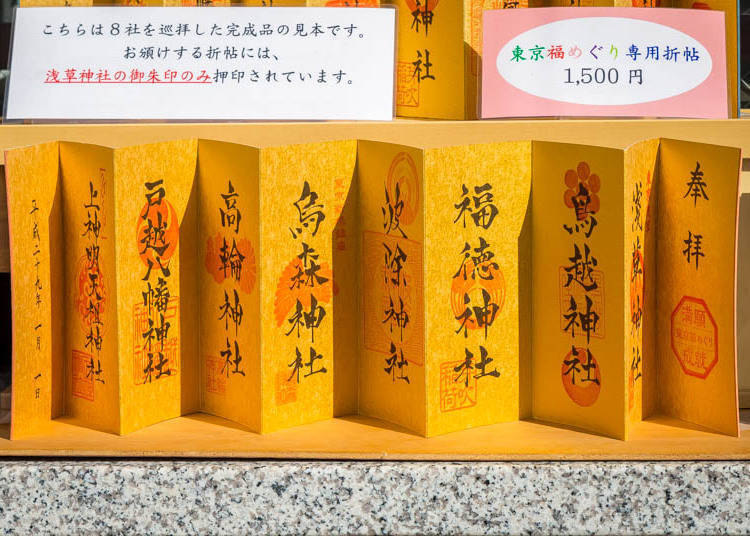 こちらは８社を巡拝した完成品の見本です。
お頒けする折帖には、
浅草神社の御朱印のみ押印されています。
東京福めぐり専用折帖
1,500 円
神社
奉拝
浅草神社
鳥越神社
福徳神社
波除神社
烏森神社
高輪神社
戸越八幡神社
上神明天祖神社
平成二十九年 一月 一日
満願
東京福めぐり
成就